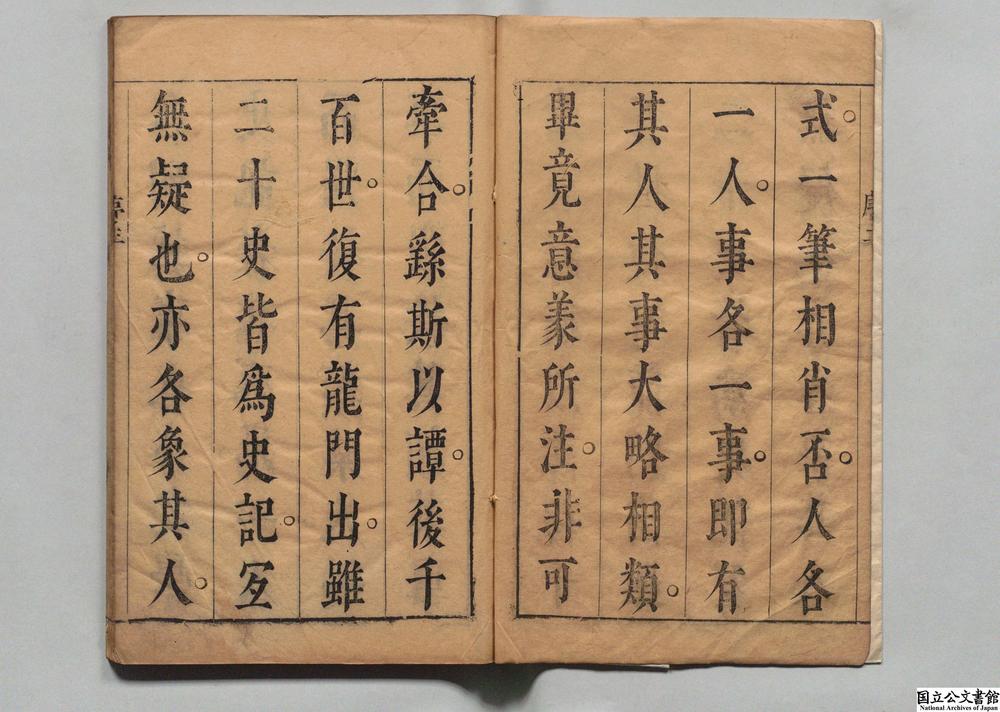 式。一筆相肖否。人各
一人。事各一事。即有
其人其事大略相類。
畢竟意義所注。非可
牽合。繇斯以譚。後千
百世。復有龍門出。雖
二十史皆爲史記。
無疑也。亦各象其人。
国立公文書館
National Archives of Japan